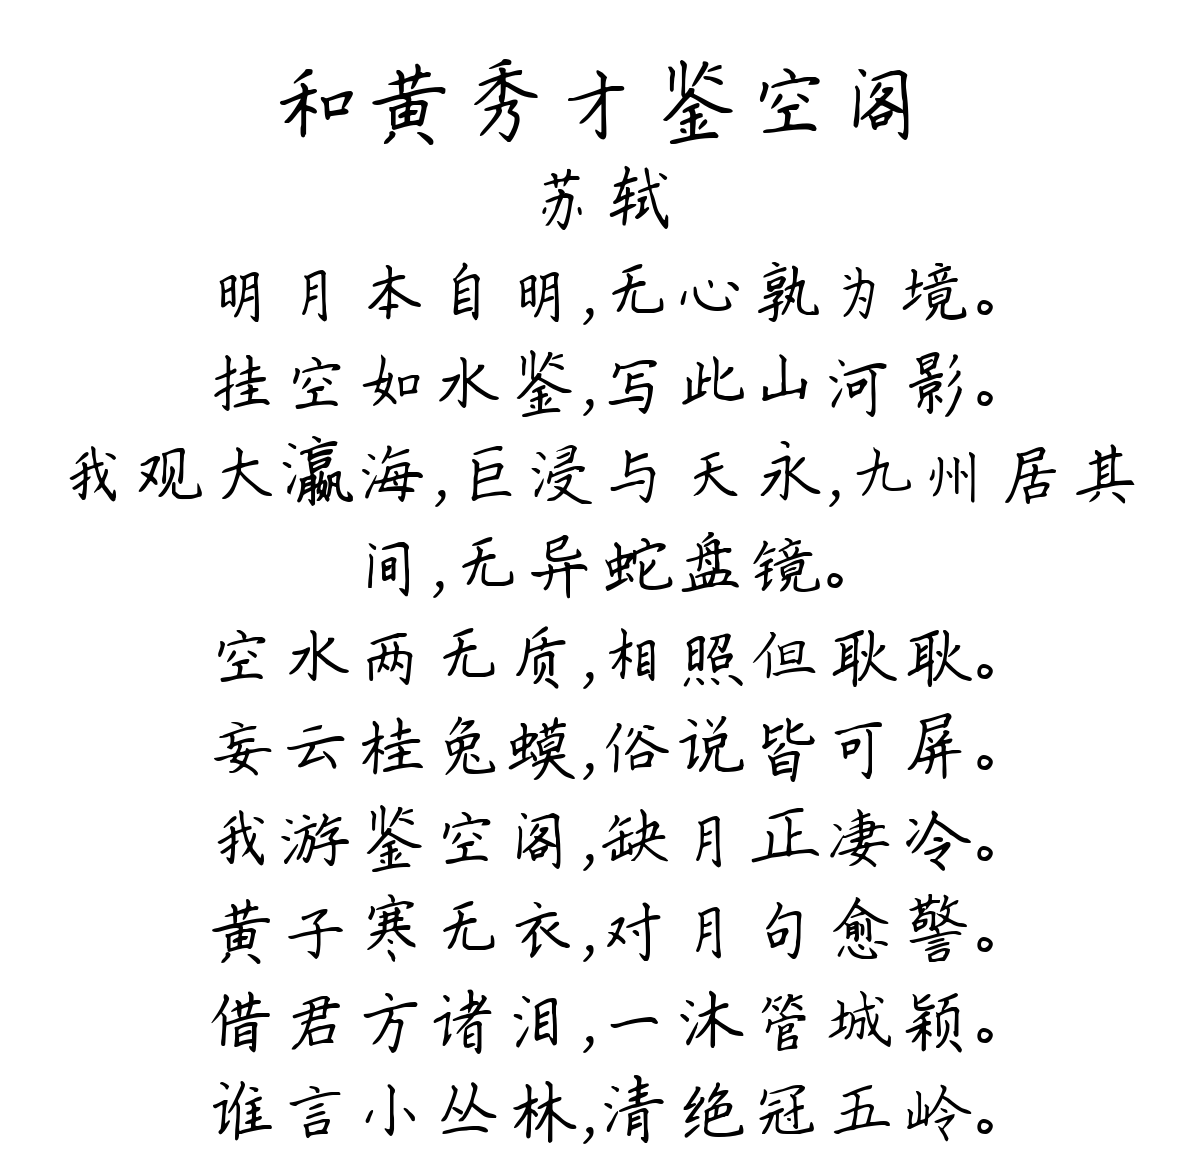 和黄秀才鉴空阁
苏轼
明月本自明,无心孰为境。
挂空如水鉴,写此山河影。
我观大瀛海,巨浸与天永,九州居其
间,无异蛇盘镜。
空水两无质,相照但耿耿。
妄云桂兔蟆,俗说皆可屏。
我游鉴空阁,缺月正凄冷。
黄子寒无衣,对月句愈警。
借君方诸泪,一沐管城颖。
谁言小丛林,清绝冠五岭。